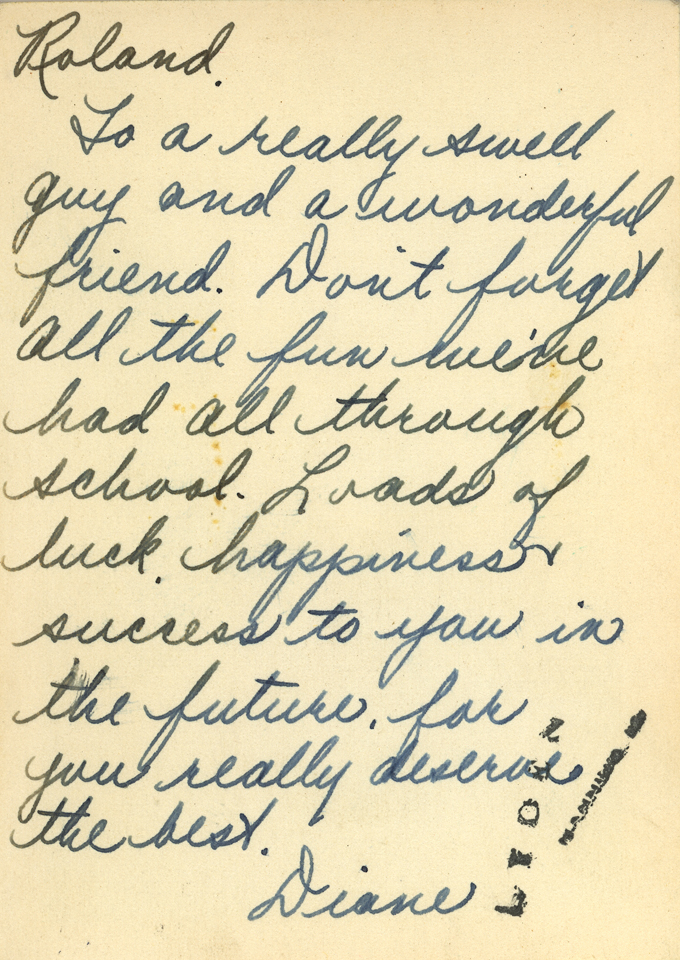 Roland.
To a really swell
guy and a wonderful
friend. Don't forget
all the fun we've
had all through
school. Loads of
luck, happiness &
success to you in
the future, for
you really deserve
the best.
Diane